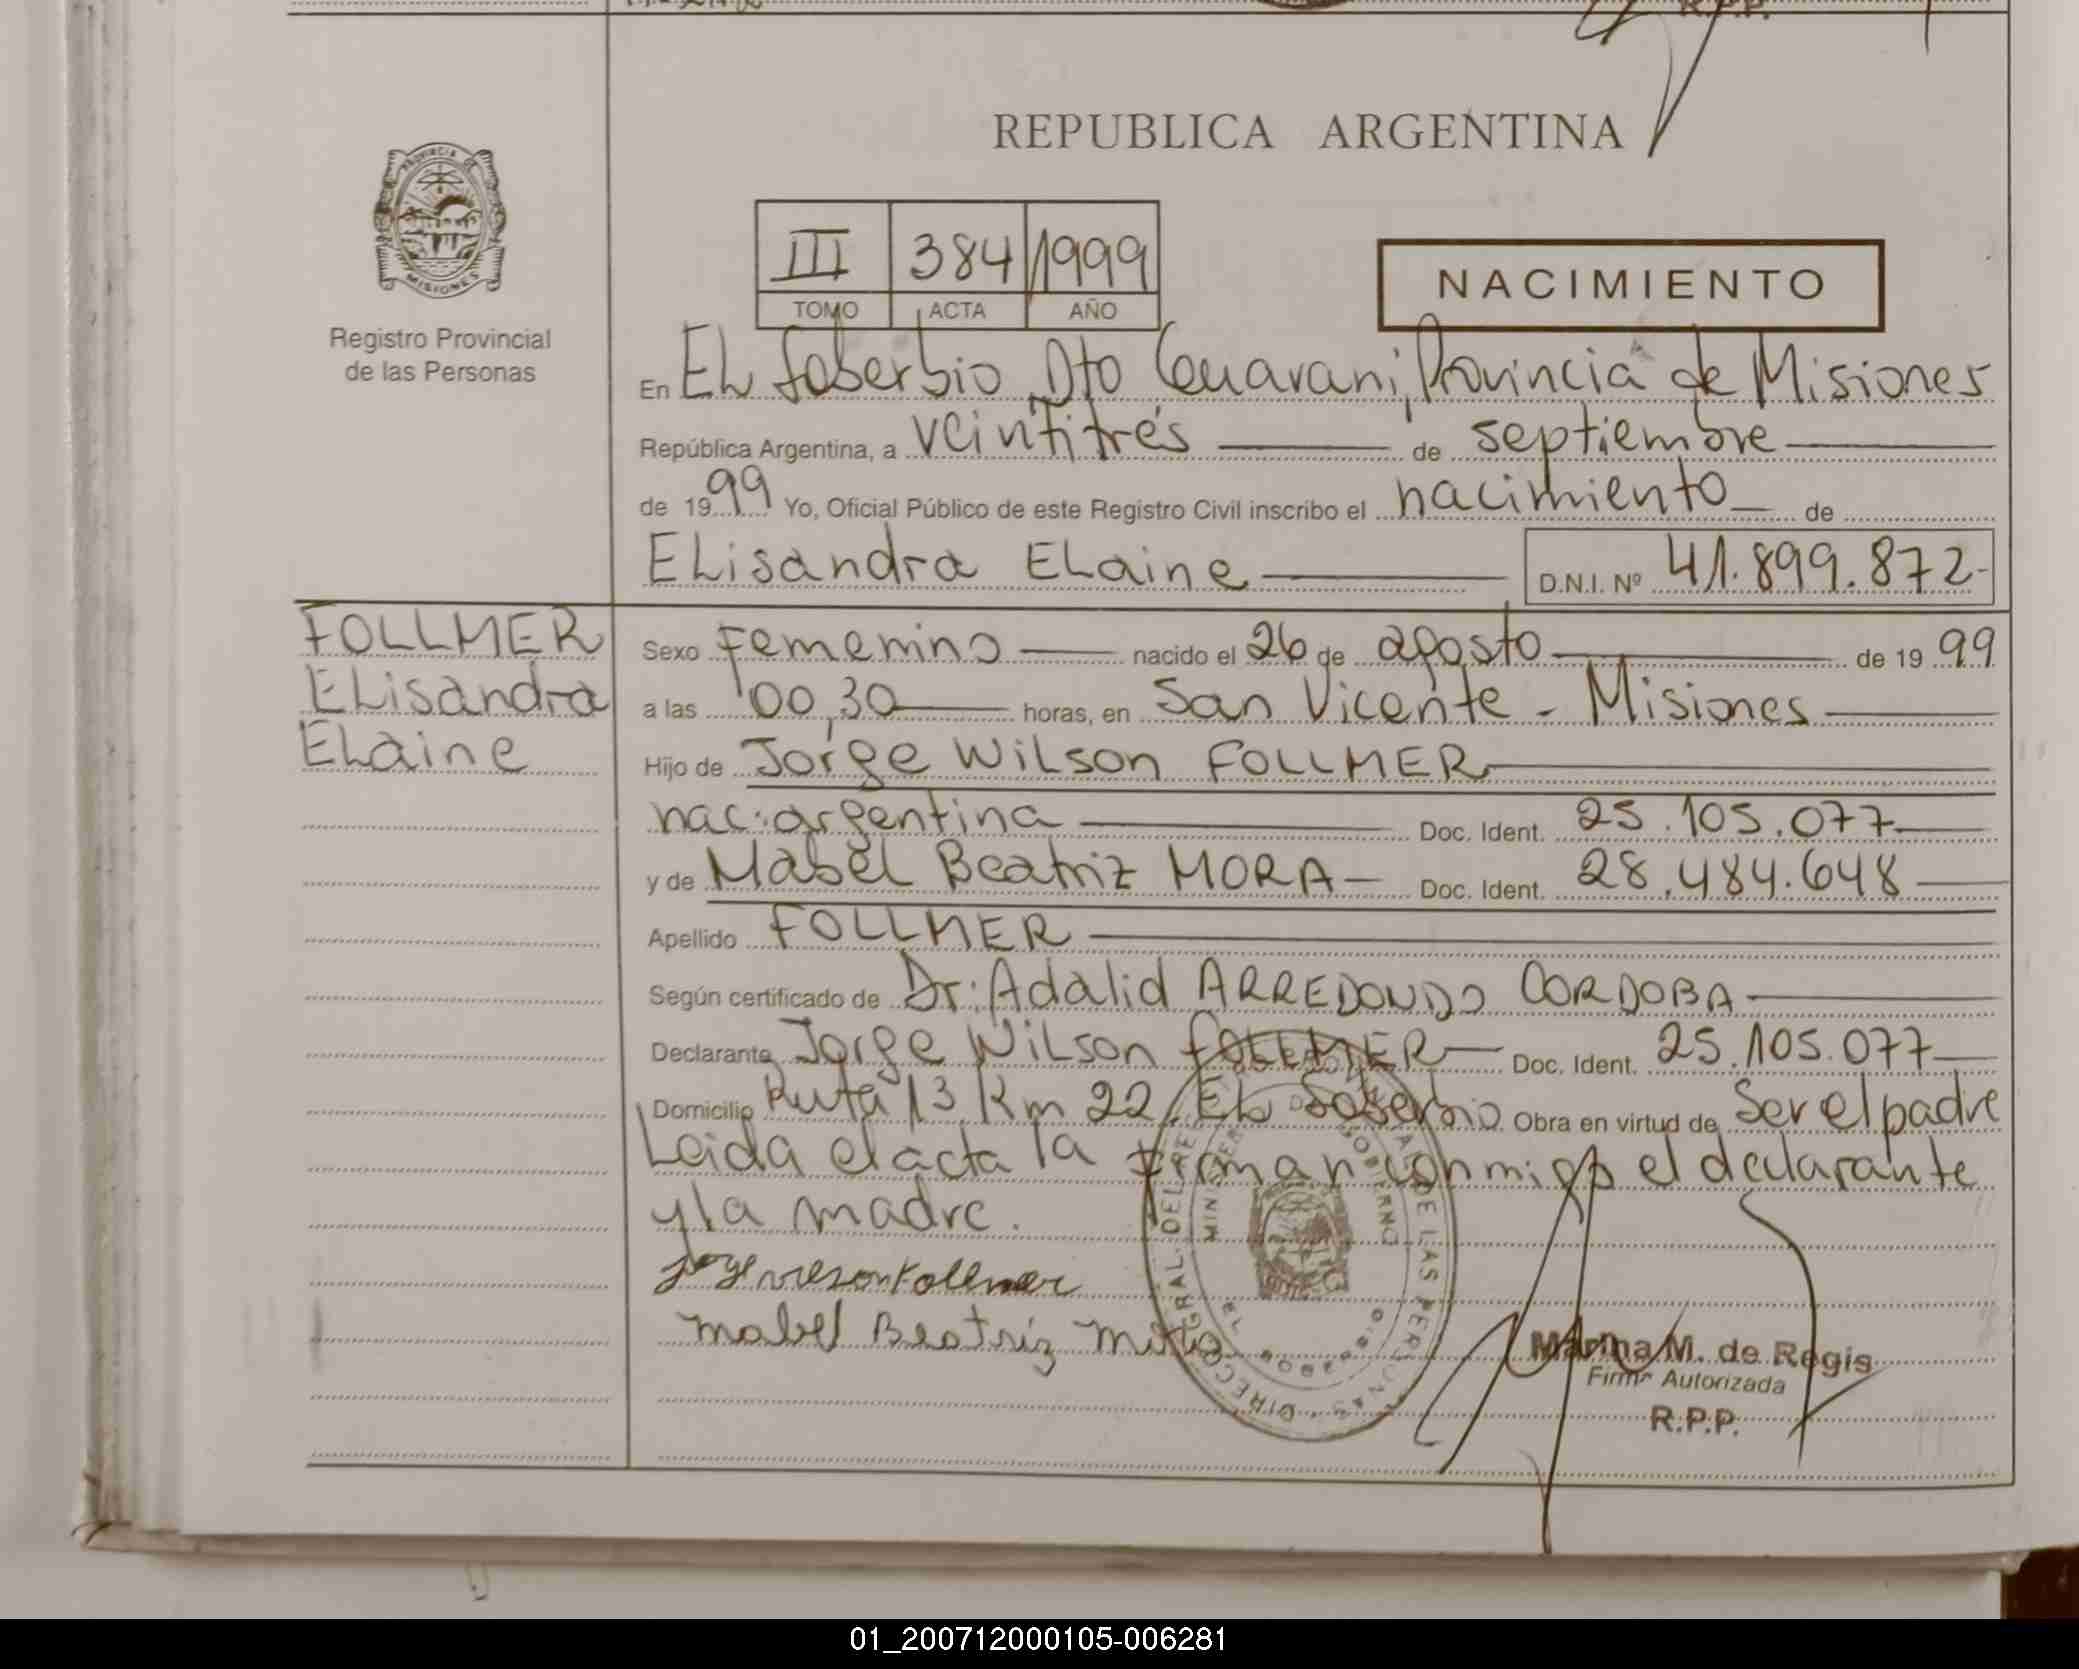 REPUBLICA ARGENTINA
PROVINCIA DE
MISIONES
Registro Provincial
de las Personas
III 384 1999
TOMO ACTA AÑO
NACIMIENTO
En EL Soberbio Dto Guarani, Provincia de Misiones
República Argentina, a veintitrés de septiembre
de 1999 Yo, Oficial Público de este Registro Civil inscribo el nacimiento de
ELisandra ELaine D.N.I. Nº 41.899.872-
FOLLMER
ELisandra
ELaine
Sexo Femenino nacido el 26 de agosto de 19 99
a las 00,30 horas, en San Vicente - Misiones
Hijo de Jorge Wilson FOLLMER
nac. argentina Doc. Ident. 25.105.077
y de Mabel Beatriz MORA Doc. Ident. 28.484.648
Apellido FOLLMER
Según certificado de Dr. Adalid ARREDONDO CORDOBA
Declarante Jorge Wilson FOLLMER Doc. Ident. 25.105.077
Domicilio Ruta 13 Km 22, EL Soberbio Obra en virtud de Ser el padre
Leida el acta la firman conmigo el declarante
y la madre.
Jorge Wilson Follmer
Mabel Beatriz Mora
DIRECC GRAL. DEL DE LAS PERSONAS
EL SOBERBIO
Marina M. de Regis
Firma Autorizada
R.P.P.
01_200712000105-006281